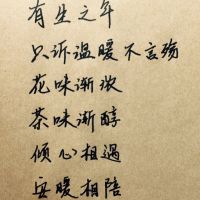 有生之年
只诉温暖不言殇
花味渐浓
茶味渐醇
倾心相遇
安暖相陪